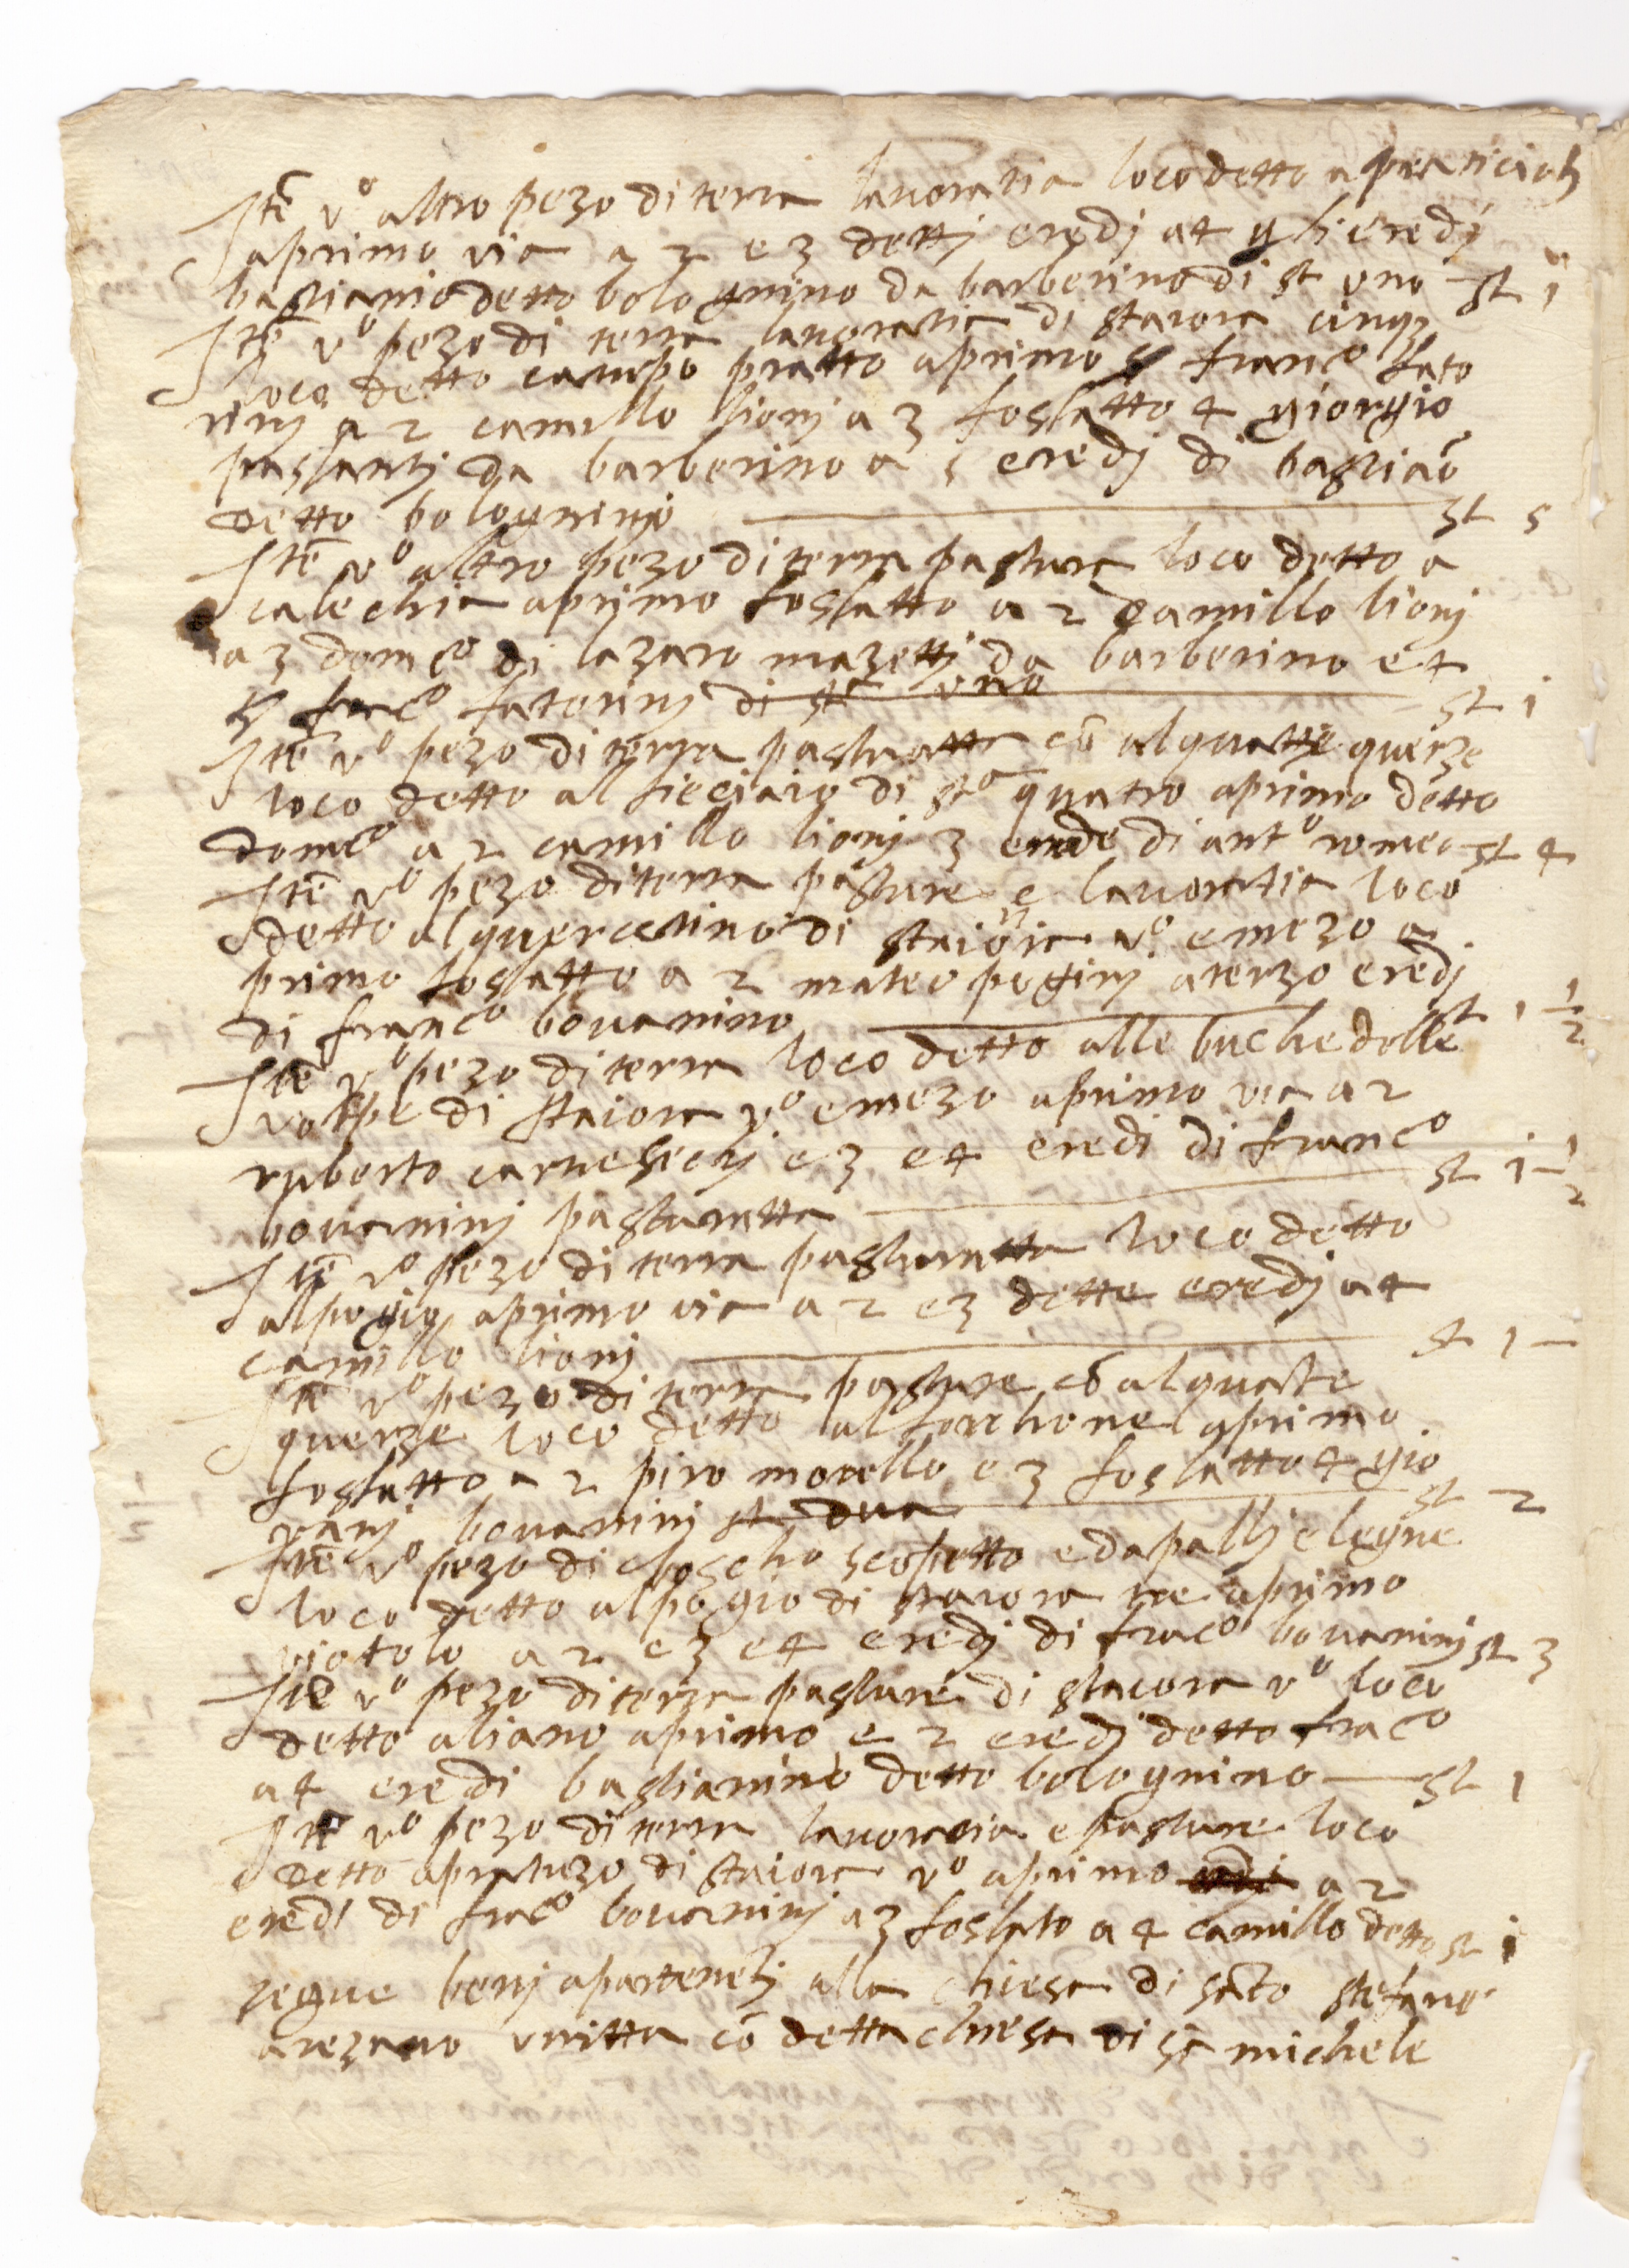 Itē vº altro pezo di terra lavoratia loco detto a praticiali
a primo via a 2 e 3 detti eredj a 4 gli eredj
bastianio detto bolognino da barberino di st uno st 1
Itē vº pezo di terra lavoratia di staiora cinq3
loco detto campo pratto a primo franc.º fato
rinj a 2 camillo lionj a 3 fossatto 4 giorgio
passantj da barberino a 5 eredj di bastiāo
detto bologninjo st 5
Itē vº altro pezo di terra pastura loco detto a
calechia a primo fossatto a 2 camillo lionj
a 3 domc.º di lazaro mazettj da barberino e 4
frāc.º fatorinj di st uno st i
Itē vº pezo di terra pasturatta cō alquatte querze
loco detto al lieciaio di stª quatro a primo detto
domc.º a 2 camillo lionj 3 erede di antº romei st 4
Itē vº pezo di terra pasture e lavoratia loco
detto al quercetino di staiora vº e mezo a
primo fossatto a 2 mateo poginj a terzo eredj
di franc.º bovanino st 1 1/2
Itē vº pezo di terra loco detto alle buche delle
volpe di staiora vº e mezo a primo via a 2
ruberto carnesichj e 3 e 4 eredi di franc.º
bovaninj pasturatta st i 1/2
Itē vº pezo di terra pasturatta loco detto
al pogio a primo via a 2 e 3 dette eredj a 4
camillo lionj st 1
Itē vº pezo di terra pasture cō alquatte
querze loco detto al forchone a primo
fossatto a 2 piro morello e 3 fossatto 4 gio
vanj bovaninj st dua st 2
Itē vº pezo di boscho scopetto e da pallj e legne
loco detto al pogio di staiora tre a primo
viotolo a 2 e 3 e 4 eredj di frāc.º bovaninj st 3
Itē vº pezo di terra pasture di staiora vº loco
detto aliano a primo e 2 eredj detto frāc.º
a 4 eredi bastianino detto bolognino st 1
Itē vº pezo di terra lavoratia e pasture loco
detto a pratuzo di staiora vº a primo a 2
eredi di frāc.º bovaninj a 3 fossato a 4 camillo detto st i
segue benj apartenētj alla chiesa di sāto stefano
a rezano unitta cō detta chiesa di sā michele